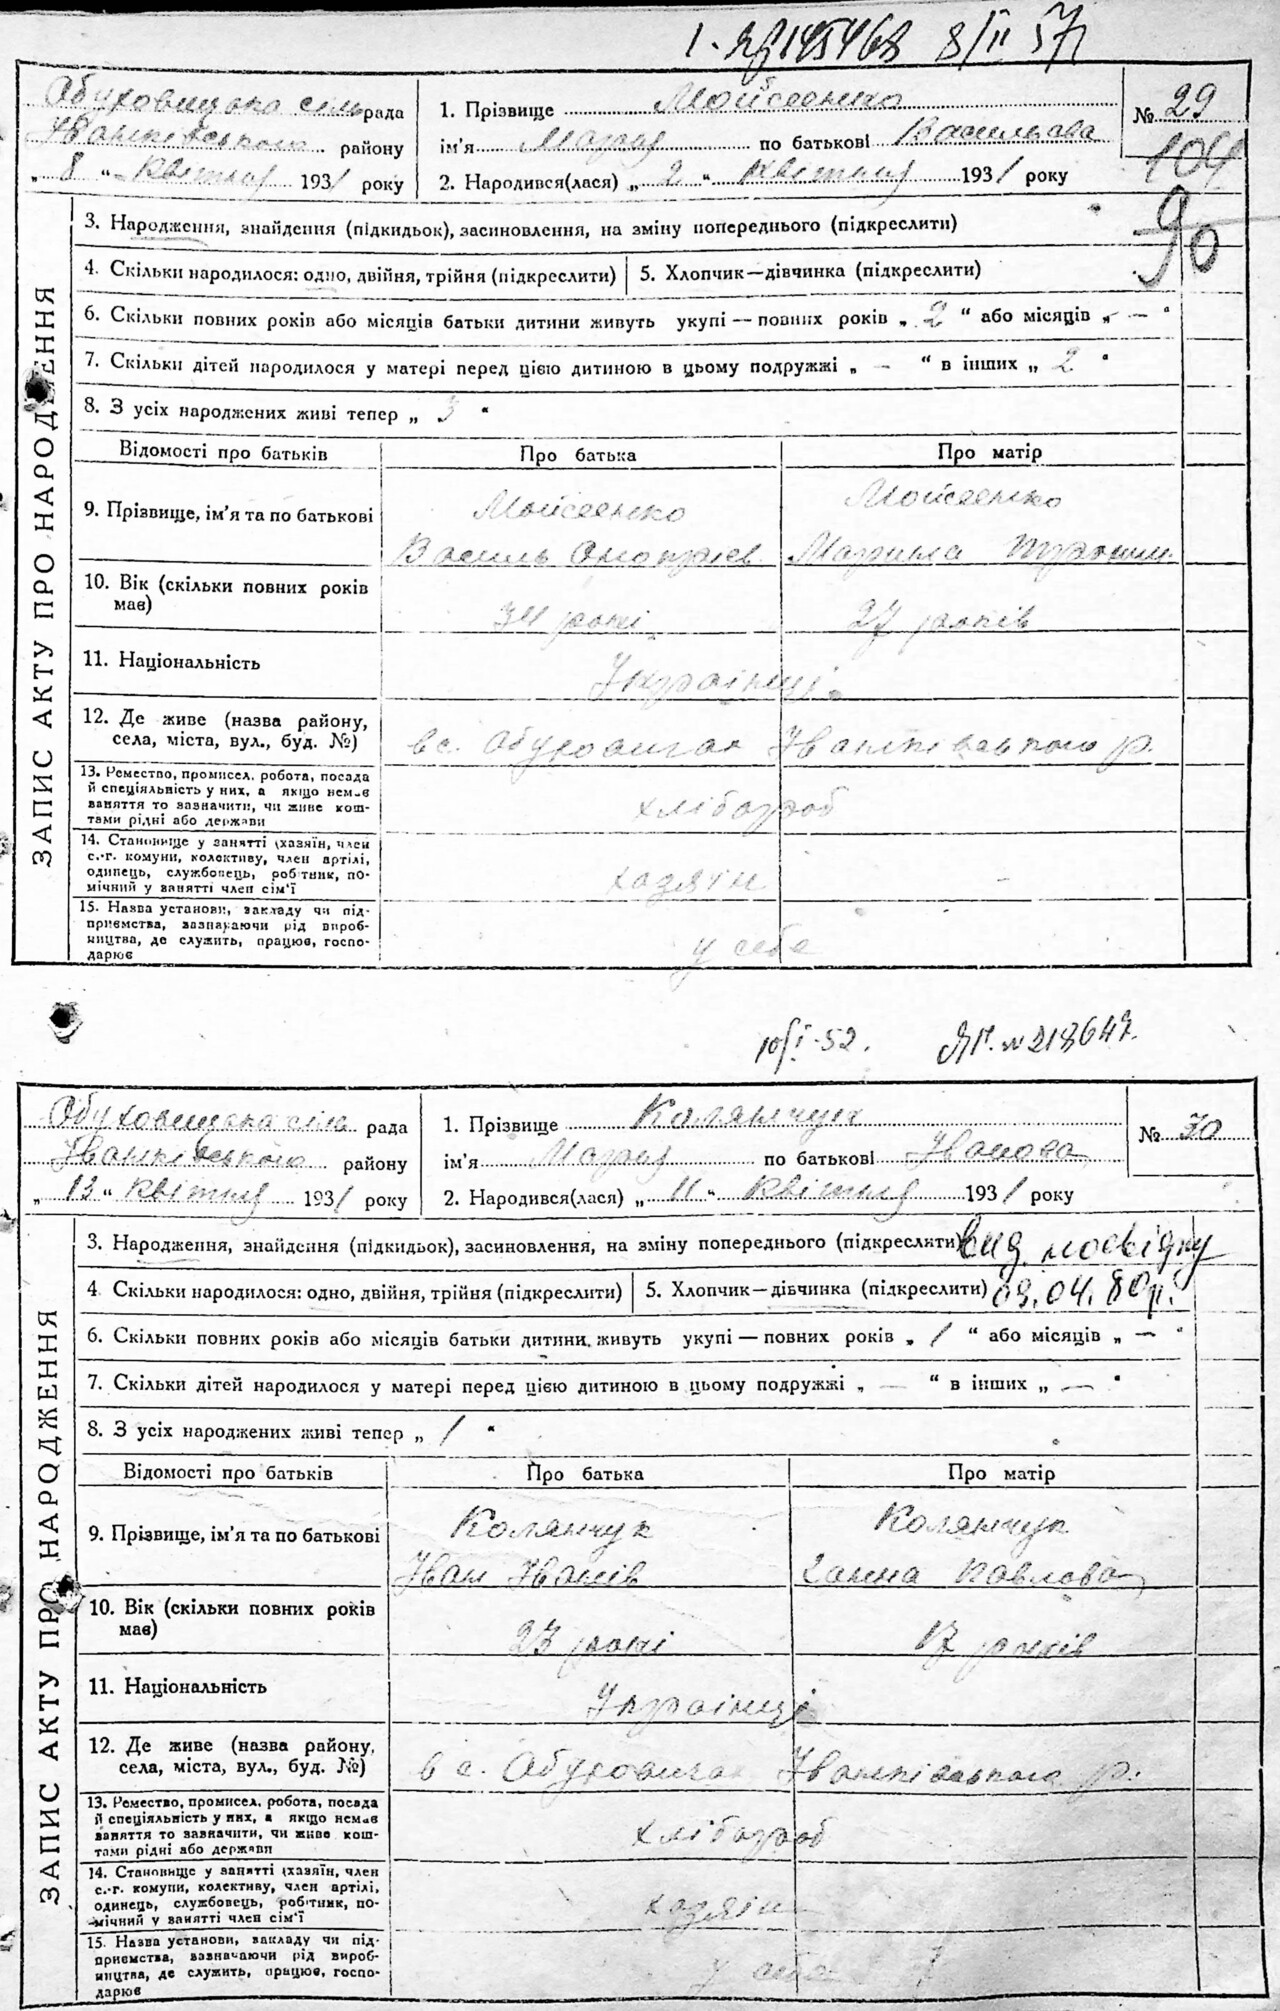 8/II 57
Обуховицька сільрада
Іванківського району
„ 8 “ Квітня 1931 року
1. Прізвище Мойсеенко
ім'я Мария по батькові Васильова
2. Народився(лася) „ 2 “ Квітня 1931 року
№ 29
104
90
ЗАПИС АКТУ ПРО НАРОДЖЕННЯ
3. Народження, знайдення (підкидьок), засиновлення, на зміну попереднього (підкреслити)
4. Скільки народилося: одно, двійня, трійня (підкреслити) 5. Хлопчик—дівчинка (підкреслити)
6. Скільки повних років або місяців батьки дитини живуть укупі — повних років „ 2 “ або місяців „ — “
7. Скільки дітей народилося у матері перед цією дитиною в цьому подружжі „ — “ в інших „ 2 “
8. З усіх народжених живі тепер „ 3 “
Відомості про батьків Про батька Про матір
9. Прізвище, ім'я та по батькові
Мойсеенко Мойсеенко
Василь
10. Вік (скільки повних років має)
34 роки 27 років
11. Національність
Українці
12. Де живе (назва району, села, міста, вул., буд. №)
в с. Обуховичах Іванківського р.
13. Ремество, промисел, робота, посада
й спеціяльність у них, а якщо немає
заняття то зазначити, чи живе кош-
тами рідні або держави
хлібороб
14. Становище у занятті (хазяїн, член
с.-г. комуни, колективу, член артілі,
одинець, службовець, робітник, по-
мічний у занятті член сім'ї
хазяін —
15. Назва установи, закладу чи під-
приємства, зазначаючи рід вироб-
ництва, де служить, працює, госпо-
дарює
у себе
10/I-52. № 218647.
Обуховицька сіль рада
Іванківського району
„ 13 “ Квітня 1931 року
1. Прізвище Колянчук
ім'я Мария по батькові Іванова
2. Народився(лася) „ 11 “ Квітня 1931 року
№ 30
ЗАПИС АКТУ ПРО НАРОДЖЕННЯ
3. Народження, знайдення (підкидьок), засиновлення, на зміну попереднього (підкреслити)
вид. посвідку
4. Скільки народилося: одно, двійня, трійня (підкреслити) 5. Хлопчик—дівчинка (підкреслити)
03.04.80р.
6. Скільки повних років або місяців батьки дитини живуть укупі — повних років „ 1 “ або місяців „ — “
7. Скільки дітей народилося у матері перед цією дитиною в цьому подружжі „ — “ в інших „ — “
8. З усіх народжених живі тепер „ 1 “
Відомості про батьків Про батька Про матір
9. Прізвище, ім'я та по батькові
Колянчук Колянчук
Іван Іванів Ханна Павлова
10. Вік (скільки повних років має)
23 роки 17 років
11. Національність
Українці
12. Де живе (назва району, села, міста, вул., буд. №)
в с. Обуховичах Іванківського р.
13. Ремество, промисел, робота, посада
й спеціяльність у них, а якщо немає
заняття то зазначити, чи живе кош-
тами рідні або держави
хлібороб
14. Становище у занятті (хазяїн, член
с.-г. комуни, колективу, член артілі,
одинець, службовець, робітник, по-
мічний у занятті член сім'ї
хазяін
15. Назва установи, закладу чи під-
приємства, зазначаючи рід вироб-
ництва, де служить, працює, госпо-
дарює
у себе